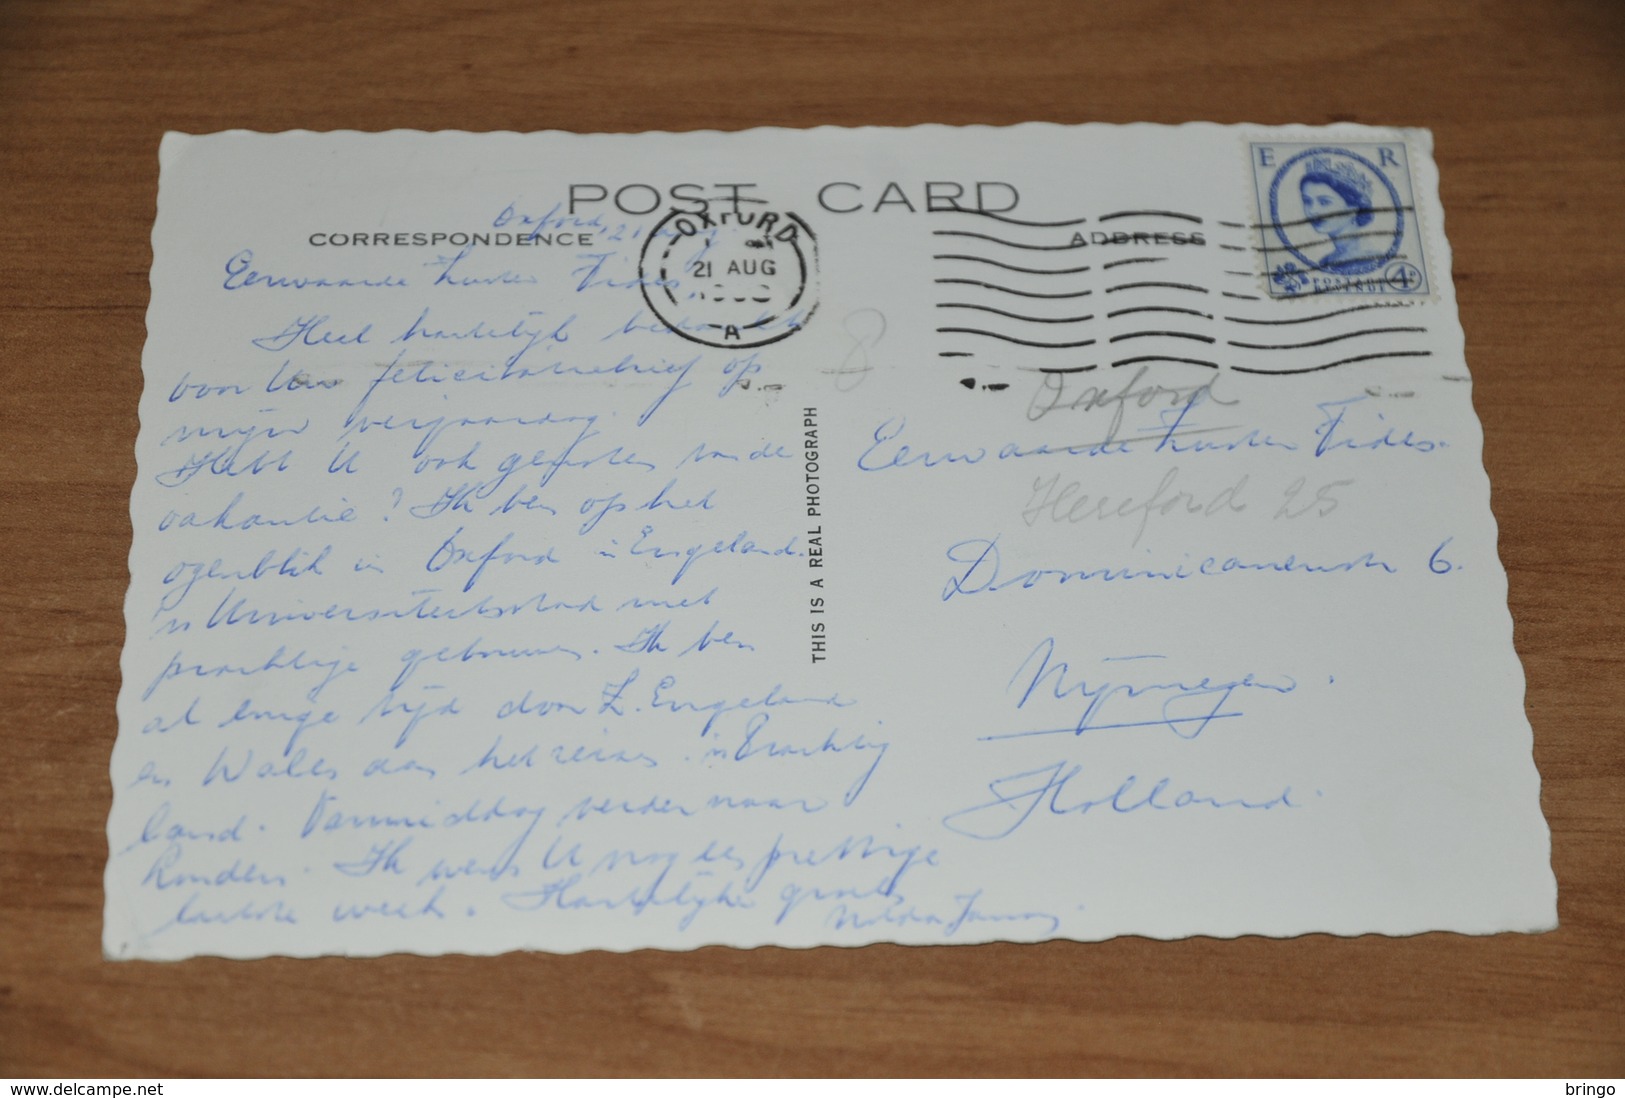 POST CARD
CORRESPONDENCE
ADDRESS
OXFORD
21 AUG
A
E R
POSTAGE
REVENUE
4D
Oxford, 21 Aug.
Eerwaarde Zuster Fides,
Heel hartelijk bedankt
voor Uw felicitatiebrief op
mijn verjaardag.
Hebt U ook genoten van de
vakantie? Ik ben op het
ogenblik in Oxford in Engeland.
'n Universiteitsstad met
prachtige gebouwen. Ik ben
al enige tijd door Z. Engeland
en Wales aan het reizen. 'n Prachtig
land. Vanmiddag verder naar
Londen. Ik wens U nog een prettige
laatste week. Hartelijke groeten
THIS IS A REAL PHOTOGRAPH
8
Oxford
Eerwaarde Zuster Fides.
Hereford 25
Dominicanenstr 6.
Nijmegen.
Holland.
www.delcampe.net
bringo